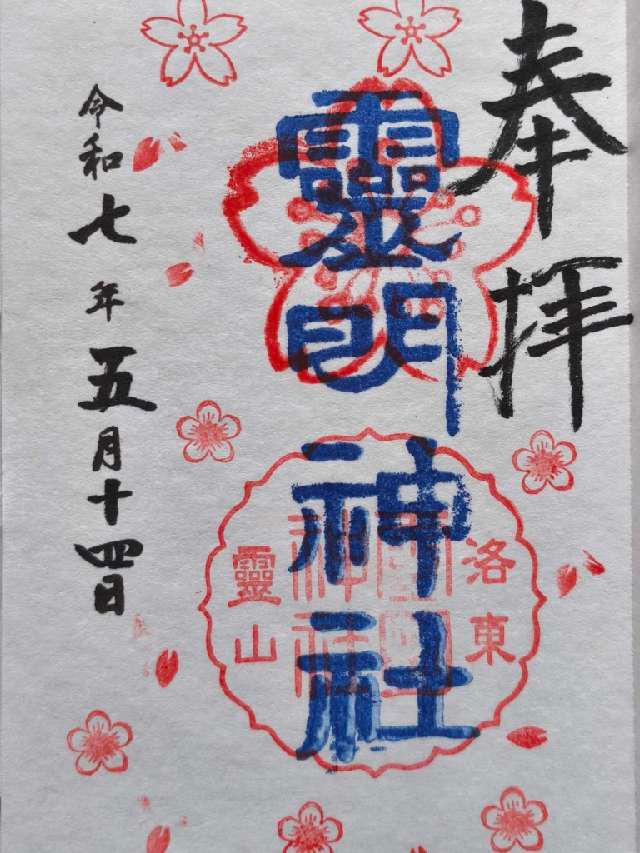 奉拝
靈明神社
洛東
靈山
令和七年五月十四日